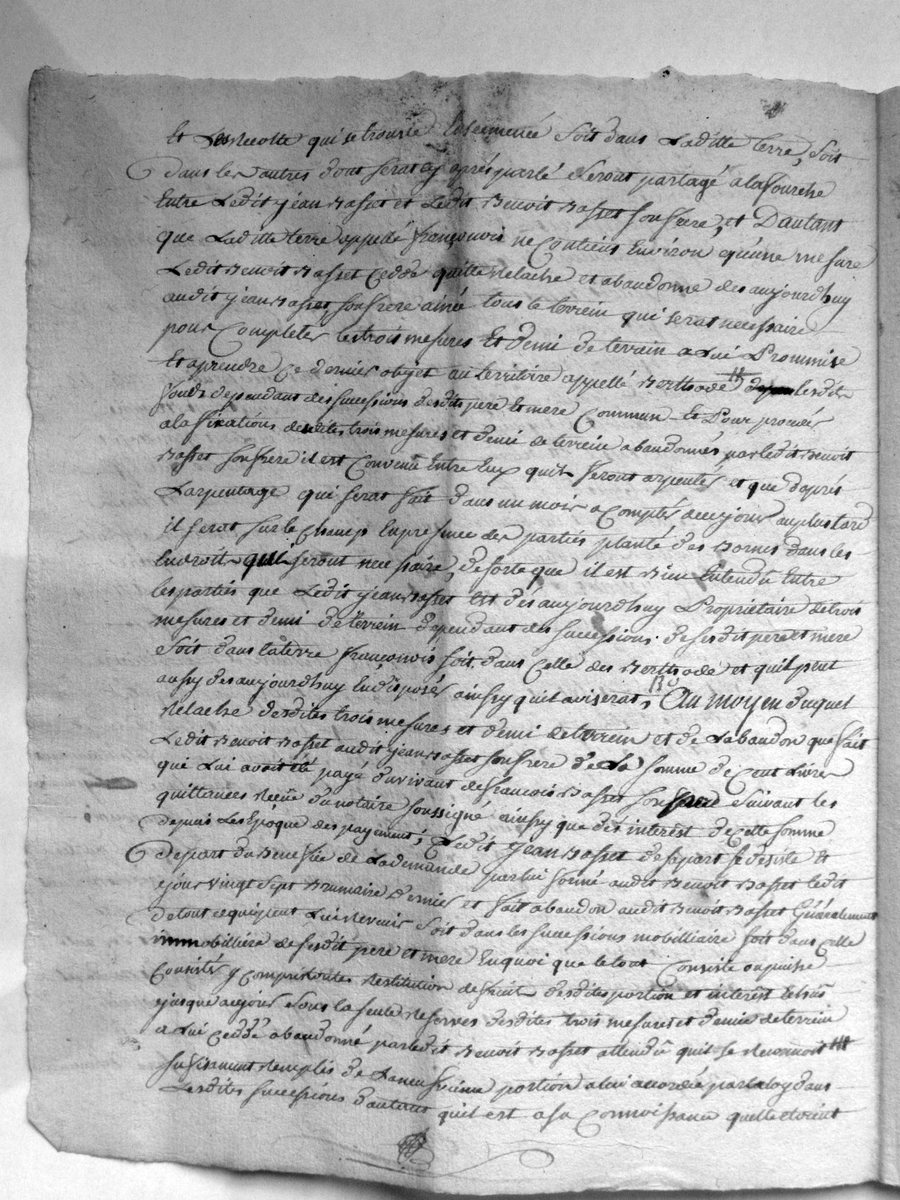 et La Recolte qui se trouve Ensemencée Soit dans Laditte terre, Soit
dans les autres dont serat cy après parlé Seront partagé a la fourche
Entre Ledit jean Basset et Ledit Benoit Basset son frere, et Dautant
que Laditte terre appellé françonois ne Contiens Environ qu'une mesure
Ledit Benoit Basset Cedde quitte Relache et abandonne des aujourdhuy
audit jean Basset son frere ainée tous le terrein qui serat necessaire
pour Completter les trois mesures Et demi de terrein a Lui Prommise
Et aprendre Ce dernier objet au territoire appellé Berthode lesdits
fonds dependant des successions desdits pere Et mere Commun Et Pour proceder
a la fixations desdittes trois mesures et demi de terrein abandonnés par ledit Benoit
Basset son frere il est Convenu Entre Eux quils seront arpentés et que d'après
Larpentage qui serat fait dans un mois a Compter de ce jour au plus tard
il serat sur le Champ En presence des parties planté des Bornes dans les
Endroits qui seront necessaire, de sorte que il est Bien Entendu Entre
les parties que Ledit jean Basset Est dès aujourdhuy Proprietaire de trois
mesures et demi de terrein dependant des successions de sesdit pere et mere
Soit dans la terre françonois soit dans Celle des Berthode et quil peut
aussy des aujourdhuy En disposer ainssy quil aviserat, Au moyen duquel
Relache desdites trois mesures et demi de terrein et de Labandon que fait
Ledit Benoit Basset audit jean Basset son frere de La Somme de Cent Livres
qui Lui avoit été payé du vivant de francois Basset son Suivant les
quittances Reçüe du notaire soussigné ainssy que des interest de Cette somme
depuis Les Epoque des payements; Ledit jean Basset se départ se desiste Et
Depart du Benefice de La demande par lui formé audit Benoit Basset ledit
jour vingt sept Brumaire Dernier et fait abandon audit Benoit Basset Généralement
de tout ce qui peut Lui Revenir Soit dans les successions mobilliaire soit dans celle
immobilliére de sesdit pere et mere En quoi que le tout Consiste ou puisse
Consister y Compris toutes Restitution de fruits desdites portion et interest Echus
jusque a ce jour Sous la seule Reserves desdites trois mesures et demie de terrein
a Lui Ceddé abandonné par ledit Benoit Basset attendu quil se Reconnoit
suffisament Remplis de La portion a lui accordée par la loy dans
Lesdites successions d'autant quil est a sa Connoissance quelle etoient